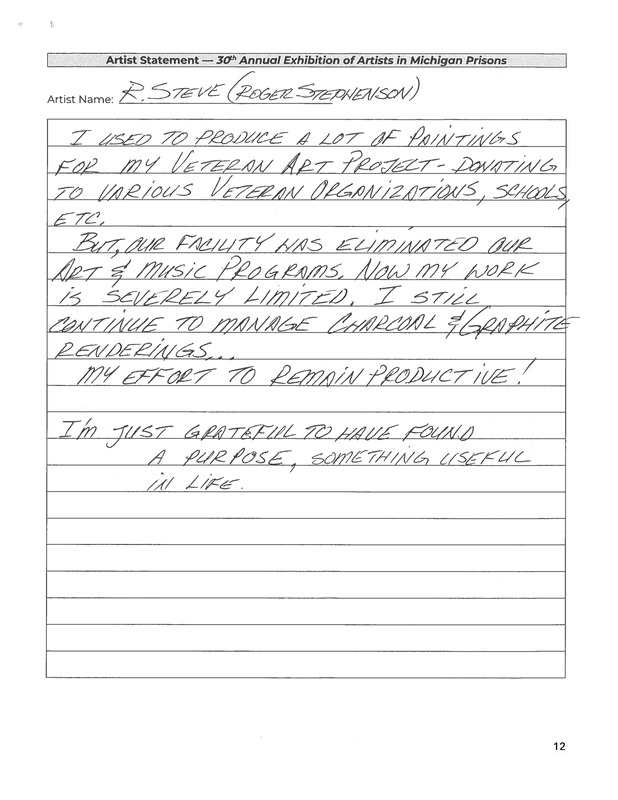 Artist Statement — 30th Annual Exhibition of Artists in Michigan Prisons
Artist Name: R. STEVE (ROGER STEPHENSON)
I USED TO PRODUCE A LOT OF PAINTINGS
FOR MY VETERAN ART PROJECT - DONATING
TO VARIOUS VETERAN ORGANIZATIONS, SCHOOLS,
ETC.
BUT, OUR FACILITY HAS ELIMINATED OUR
ART & MUSIC PROGRAMS. NOW MY WORK
IS SEVERELY LIMITED. I STILL
CONTINUE TO MANAGE CHARCOAL & GRAPHITE
RENDERINGS...
MY EFFORT TO REMAIN PRODUCTIVE!
I'M JUST GRATEFUL TO HAVE FOUND
A PURPOSE, SOMETHING USEFUL
IN LIFE.
12